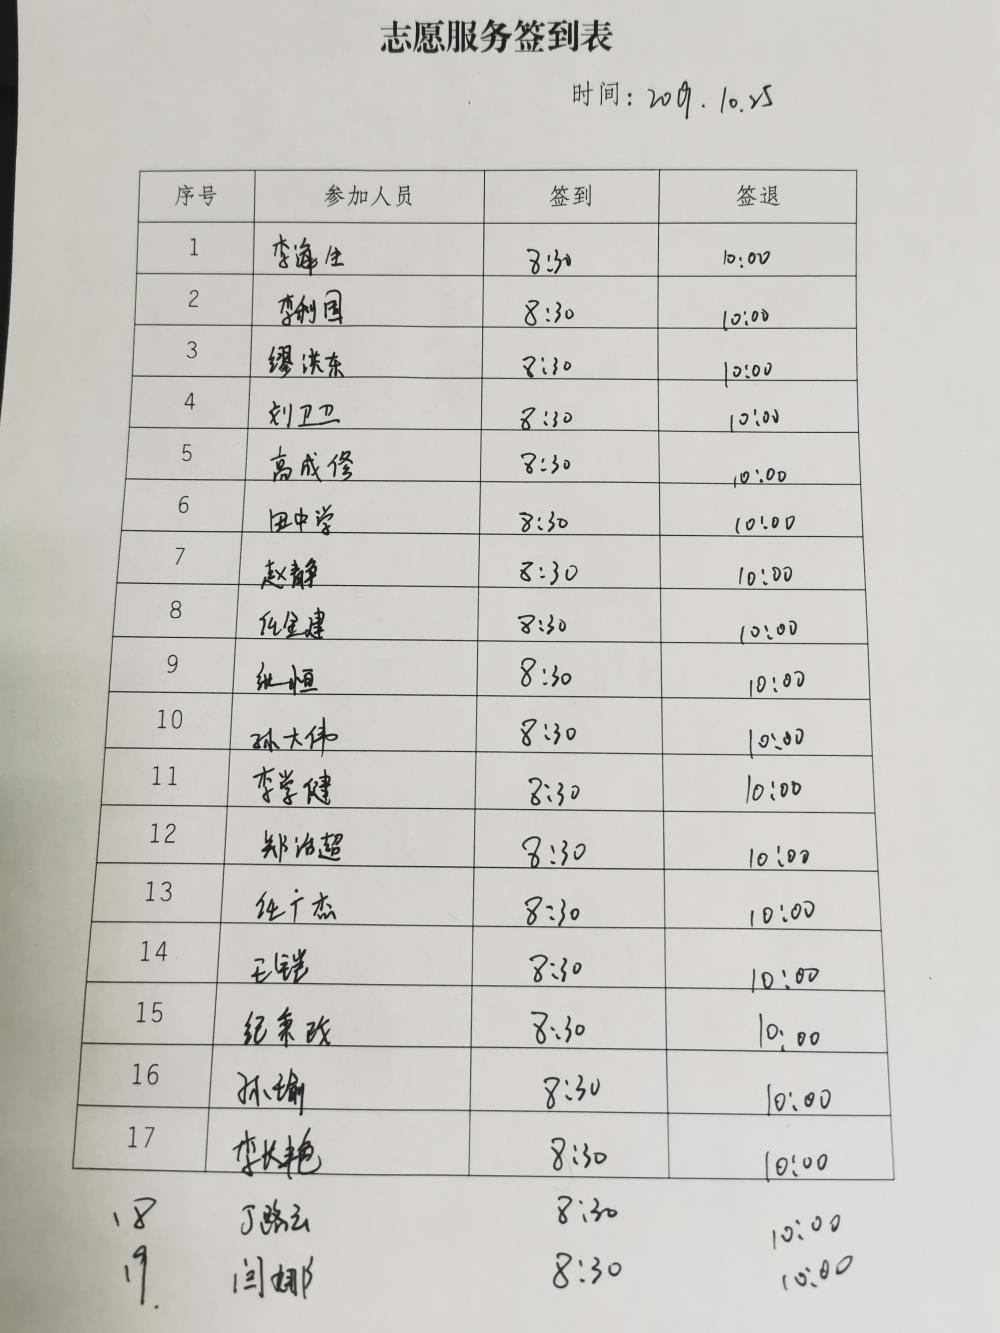 志愿服务签到表
时间: 2019.10.25
序号 参加人员 签到 签退
1 李海生 8:30 10:00
2 李利国 8:30 10:00
3 缪洪东 8:30 10:00
4 刘卫卫 8:30 10:00
5 高成修 8:30 10:00
6 田中学 8:30 10:00
7 赵静 8:30 10:00
8 任全建 8:30 10:00
9 恒 8:30 10:00
10 孙大伟 8:30 10:00
11 李学健 8:30 10:00
12 郑治超 8:30 10:00
13 任广杰 8:30 10:00
14 王铠 8:30 10:00
15 纪秉政 8:30 10:00
16 孙瑜 8:30 10:00
17 李长艳 8:30 10:00
18 丁路云 8:30 10:00
19. 闫娜 8:30 10:00